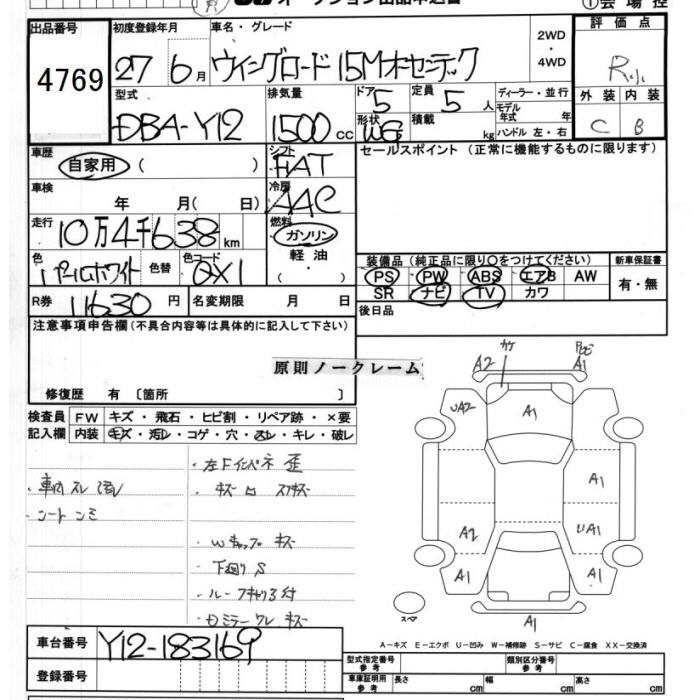 オークション出品申込書
①会場控
出品番号
4769
初度登録年月
27 6月
車名・グレード
ウイングロード 15Mオーセンテック
2WD
・
4WD
評価点
R小
型式
DBA-Y12
排気量
1500 CC
ドア 5
形状 WG
定員 5 人
積載 kg
ディーラー・並行
モデル年式 年
ハンドル 左・右
外装 内装
C B
車歴
自家用 ( )
シフト
FAT
セールスポイント(正常に機能するものに限ります)
車検
年 月( 日)
冷房
AAC
走行
10万4千638km
燃料
ガソリン
軽油
色
パールホワイト
色替
色コード
QX1
装備品(純正品に限り○をつけてください)
PS PW ABS エアB AW
SR ナビ TV カワ
新車保証書
有・無
R券 11630円
名変期限 月 日
後日品
注意事項申告欄(不具合内容等は具体的に記入して下さい)
原則ノークレーム
修復歴 有〔箇所 〕
検査員 FW キズ・飛石・ヒビ割・リペア跡・×要
記入欄 内装 キズ・汚レ・コゲ・穴・スレ・キレ・破レ
・左Fインパネ 歪
・車内 スレ 汚レ
・シート シミ
・Wキャップ キズ
・下廻り S
・ルーフキャリア付
・Dミラー ワレ キズ
A2 カケ A1
UA2 A1
A1
A2 UA1
A1 A1
A1
スペア
A-キズ E-エクボ U-凹み W-補修跡 S-サビ C-腐食 XX-交換済
車台番号 Y12-183169
登録番号
型式指定番号 参考
類別区分番号 参考
車庫証明用 参考
長さ cm 幅 cm 高さ cm